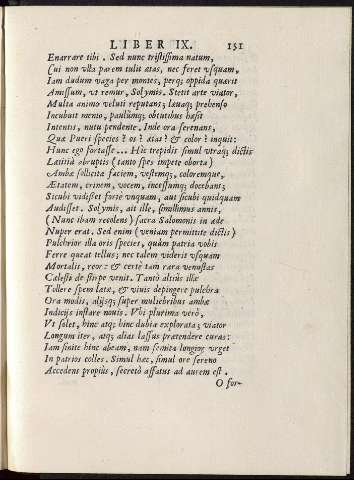 LIBER IX. 151
Enarrare tibi. Sed nunc tristissima natum,
Cui non vlla parem tulit ætas, nec feret vsquam,
Iam dudum vaga per montes, perq; oppida quærit
Amissum, vt remur, Solymis. Stetit arte viator,
Multa animo veluti reputans; læuaq; prehenso
Incubuit mento, paulùmq; obtutibus hæsit
Intentis, nutu pendente. Inde ora serenans,
Quæ Pueri species? os? ætas? & color? inquit:
Hunc ego fortasse... Hîc trepidis simul vtraq; dictis
Lætitiâ abruptis (tanto spes impete oborta)
Ambæ sollicitæ faciem, vestemq;, coloremque,
Ætatem, crinem, vocem, incessumq; docebant;
Sicubi vidisset fortè vnquam, aut sicubi quidquam
Audisset. Solymis, ait ille, simillimus annis,
(Nunc tbam recolens) sacra Salomonis in æde
Nuper erat. Sed enim (veniam permittite dictis)
Pulchrior illa oris species, quàm patria vobis
Ferre queat tellus; nec talem viderit vsquam
Mortalis, reor: & certè tam rara venustas
Cælesti de stirpe venit. Tantò altiùs illæ
Tollere spem lætæ, & viuis depingere pulchra
Ora modis, alijsq; super muliebribus ambæ
Indicijs instare nouis. Vbi plurima verò,
Vt solet, hinc atq; hinc dubiæ explorata; viator
Longum iter, atq; alias lassus prætendere curas:
Iam sinite hinc abeam, nam semita longior vrget
In patrios colles. Simul hæc, simul ore sereno
Accedens propiùs, secretò affatus ad aurem est.
O for-